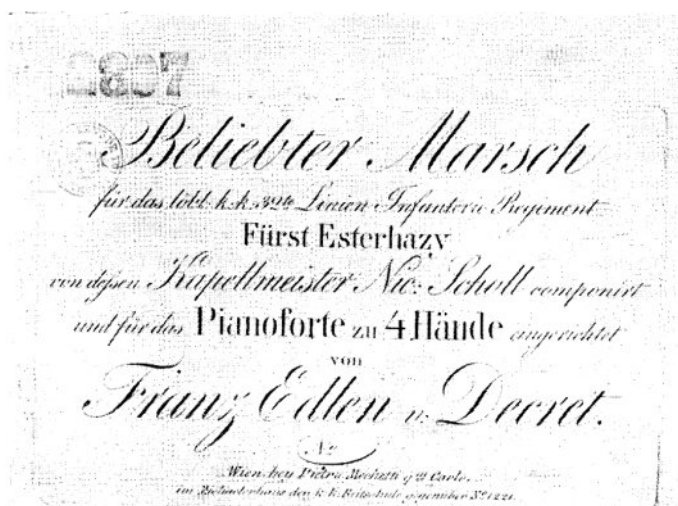 2807
Beliebter Marsch
für das löbl. k. k. Linien Infanterie Regiment
Fürst Esterhazy
von dessen Kapellmeister Nic: Scholl componirt
und für das Pianoforte zu 4 Hände eingerichtet
von
Franz Edlen v. Decret.
No
Wien, bey Pietro Mechetti qm Carlo.
im Michaelerhaus der k. k. Reitschule gegenüber No 1221.